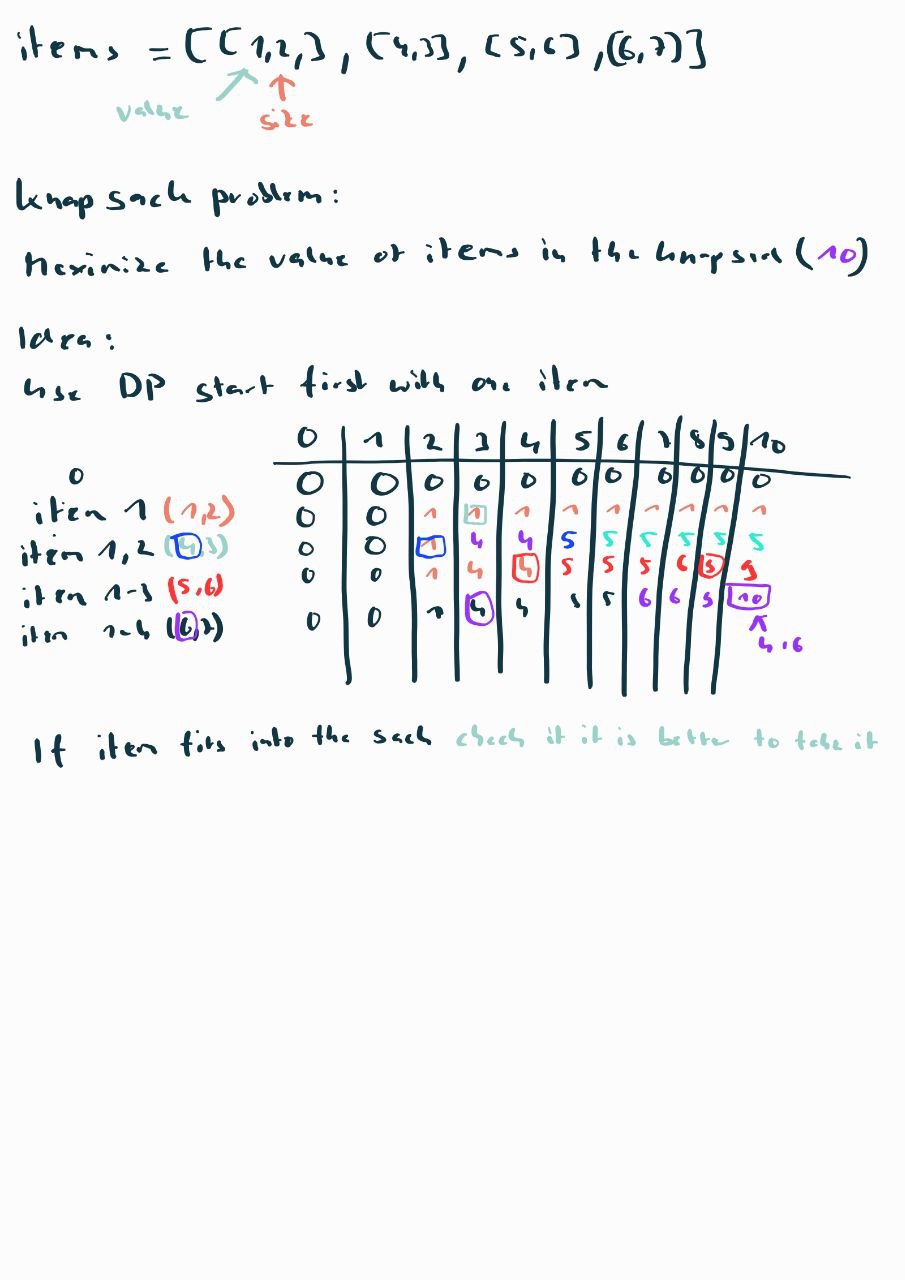 items = [[1,2,], [4,3], [5,6], [6,7]]
value size
Knapsack problem:
Maximize the value of items in the knapsack (10)
Idea:
Use DP start first with one item
0 1 2 3 4 5 6 7 8 9 10
0 0 0 0 0 0 0 0 0 0 0 0
item 1 (1,2) 0 0 1 1 1 1 1 1 1 1 1
item 1,2 (4,3) 0 0 1 4 4 5 5 5 5 5 5
item 1-3 (5,6) 0 0 1 4 4 5 5 5 6 9 9
item 1-4 (6,7) 0 0 1 4 4 5 5 6 6 9 10
4+6
If item fits into the sack check if it is better to take it